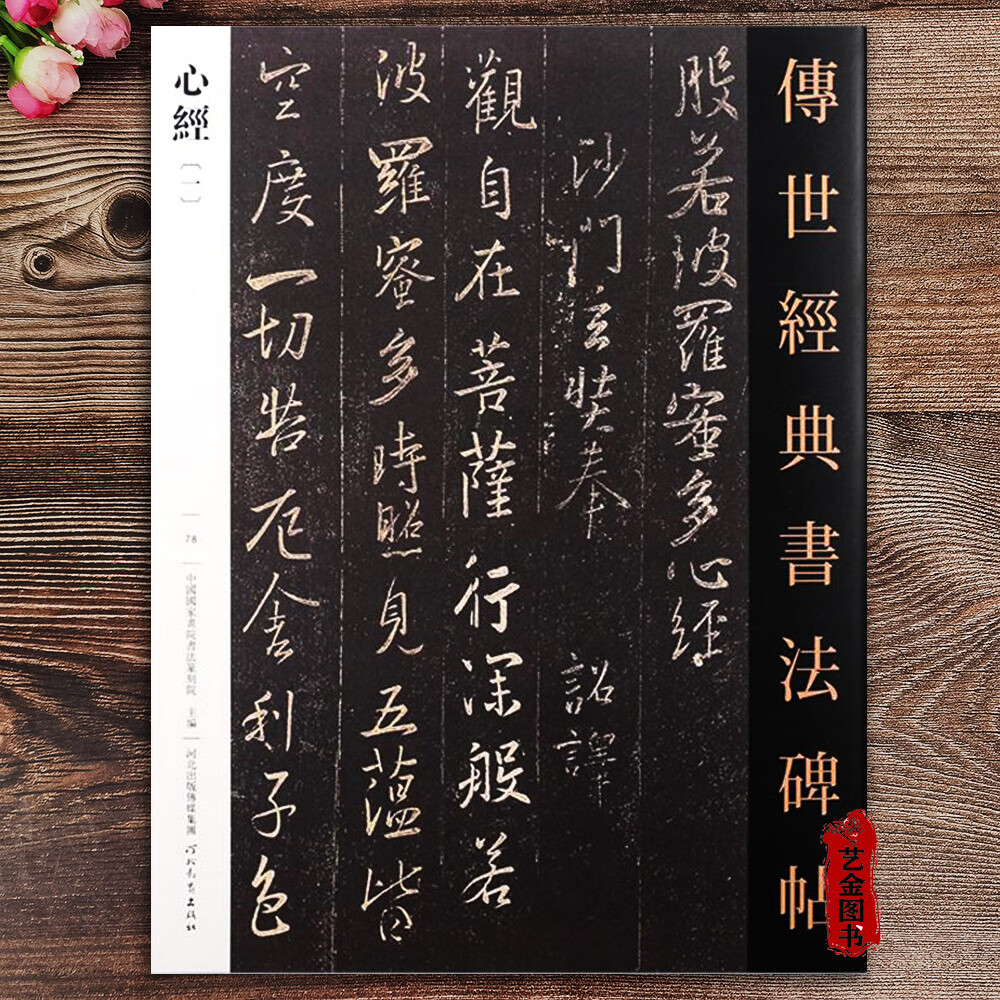 傳世經典書法碑帖
般若波羅蜜多心經
沙門玄奘奉 詔譯
觀自在菩薩行深般若
波羅蜜多時照見五蘊皆
空度一切苦厄舍利子色
心經
〔一〕
78
中國國家畫院書法篆刻院 主編
河北出版傳媒集團
河北教育出版社
艺金图书